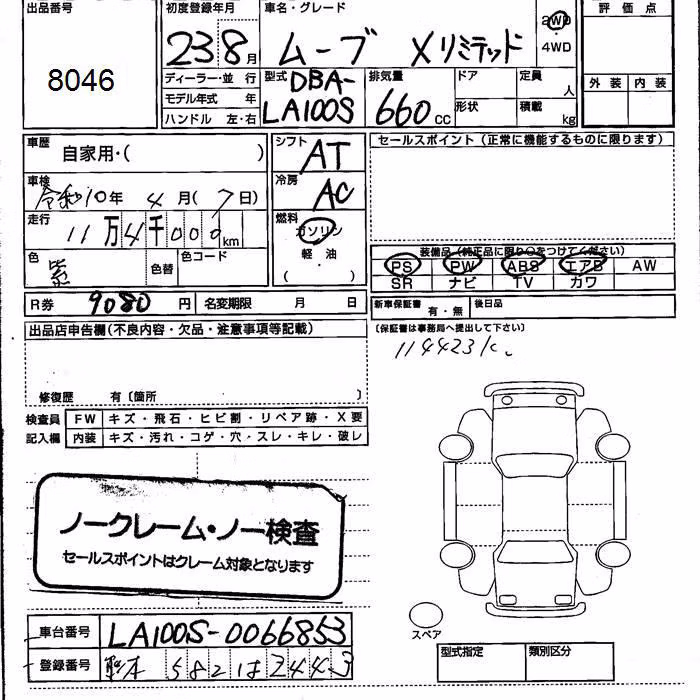 出品番号 初度登録年月 車名・グレード 評価点
8046 23 8月 ムーブ Xリミテッド 2WD ・ 4WD
ディーラー・並行 型式 排気量 ドア 定員 人 外装 内装
モデル年式 年 DBA- 660cc
ハンドル 左・右 LA100S 形状 積載 kg
車歴 自家用・( ) シフト AT セールスポイント(正常に機能するものに限ります)
車検 令和10年 4月(7日) 冷房 AC
走行 11万4千000km 燃料 ガソリン
色 紫 色替 色コード 軽・油 ( )
装備品(純正品に限り○をつけてください)
PS PW ABS エアB AW
SR ナビ TV カワ
R券 9080円 名変期限 月 日 新車保証書 有・無 後日品
出品店申告欄(不良内容・欠品・注意事項等記載) (保証書は事務局へ提出して下さい)
114423k.
修復歴 有〔箇所 〕
検査員 FW キズ・飛石・ヒビ割・リペア跡・X要
記入欄 内装 キズ・汚れ・コゲ・穴・スレ・キレ・破レ
ノークレーム・ノー検査
セールスポイントはクレーム対象となります
スペア
車台番号 LA100S-0066853
登録番号 熊本 582 は 2443
型式指定 類別区分